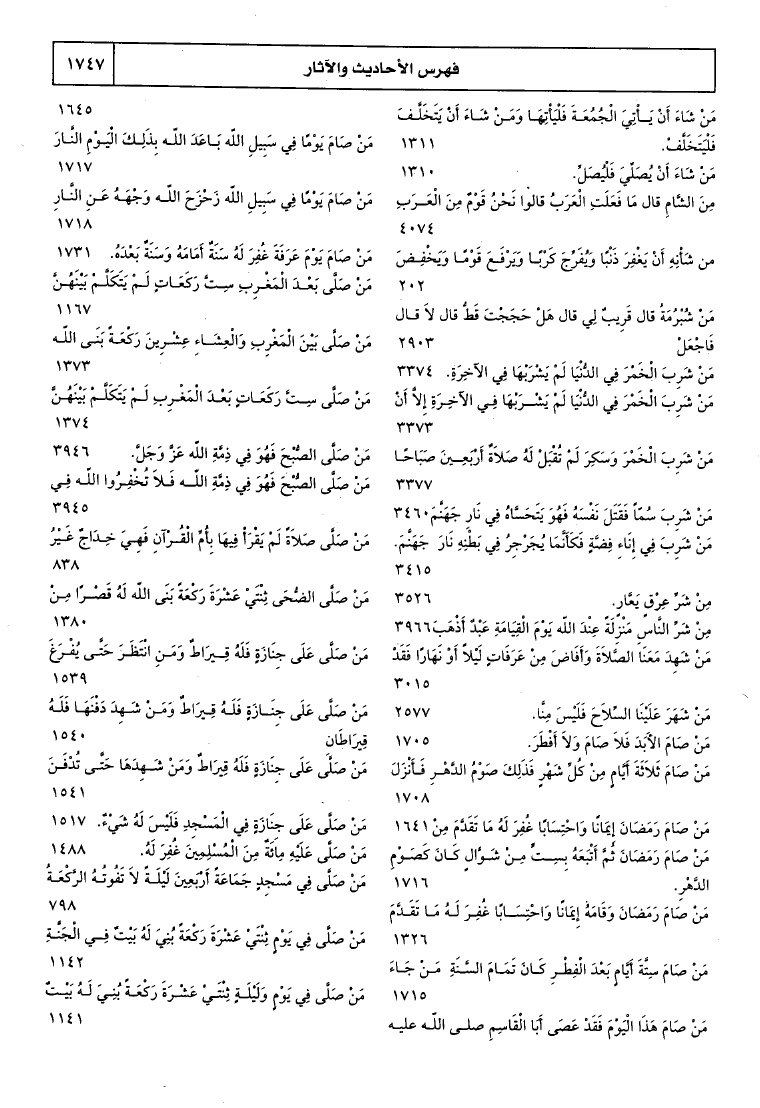 ١٧٤٧
فهرس الأحاديث والآثار
مَنْ شَاءَ أَنْ يَـأْتِيَ الْجُمُعَـةَ فَلْيَأْتِهَـا وَمَـنْ شَـاءَ أَنْ يَتَخَلَّـفَ
فَلْيَتَخَلَّفْ. ١٣١١
مَنْ شَاءَ أَنْ يُصَلِّيَ فَلْيُصَلِّ. ١٣١٠
مِنَ الشَّامِ قال مَا فَعَلَتِ الْعَرَبُ قالُوا نَحْنُ قَوْمٌ مِنَ الْعَـرَبِ
٤٠٧٤
من شَأْنِهِ أَنْ يَغْفِرَ ذَنْبًا وَيُفَرِّجَ كَرْبًـا وَيَرْفَـعَ قَوْمًـا وَيَخْفِـضَ
٢٠٢
مَنْ شُبْرُمَةُ قال قَرِيبٌ لِي قال هَلْ حَجَجْتَ قَطُّ قال لاَ قـال
فَاجْعَلْ ٢٩٠٣
مَنْ شَرِبَ الْخَمْرَ فِي الدُّنْيَا لَمْ يَشْرَبْهَا فِي الآخِرَةِ. ٣٣٧٤
مَنْ شَرِبَ الْخَمْرَ فِي الدُّنْيَا لَمْ يَشْـرَبْهَا فِـي الآخِـرَةِ إِلاَّ أَنْ
٣٣٧٣
مَنْ شَرِبَ الْخَمْرَ وَسَكِرَ لَمْ تُقْبَلْ لَهُ صَلاَةٌ أَرْبَعِـينَ صَبَاحًـا
٣٣٧٧
مَنْ شَرِبَ سُمّاً فَقَتَلَ نَفْسَهُ فَهُوَ يَتَحَسَّاهُ فِي نَارِ جَهَنَّمَ ٣٤٦٠
مَنْ شَرِبَ فِي إِنَاءِ فِضَّةٍ فَكَأَنَّمَا يُجَرْجِرُ فِي بَطْنِهِ نَارَ جَهَنَّمَ.
٣٤١٥
مِنْ شَرِّ عِرْقٍ يَعَّارٍ. ٣٥٢٦
مِنْ شَرِّ النَّاسِ مَنْزِلَةً عِنْدَ الله يَوْمَ الْقِيَامَةِ عَبْدٌ أَذْهَبَ ٣٩٦٦
مَنْ شَهِدَ مَعَنَا الصَّلاَةَ وَأَفَاضَ مِنْ عَرَفَاتٍ لَيْلاً أَوْ نَهَارًا فَقَدْ
٣٠١٥
مَنْ شَهَرَ عَلَيْنَا السِّلاَحَ فَلَيْسَ مِنَّا. ٢٥٧٧
مَنْ صَامَ الأَبَدَ فَلاَ صَامَ وَلاَ أَفْطَرَ. ١٧٠٥
مَنْ صَامَ ثَلاَثَةَ أَيَّامٍ مِنْ كُلِّ شَهْرٍ فَذَلِكَ صَوْمُ الدَّهْـرِ فَـأَنْزَلَ
١٧٠٨
مَنْ صَامَ رَمَضَانَ إِيمَانًا وَاحْتِسَابًا غُفِرَ لَهُ مَا تَقَدَّمَ مِنْ ١٦٤١
مَنْ صَامَ رَمَضَانَ ثُمَّ أَتْبَعَهُ بِسِـتٍّ مِـنْ شَـوَّالٍ كَـانَ كَصَـوْمِ
الدَّهْرِ. ١٧١٦
مَنْ صَامَ رَمَضَانَ وَقَامَهُ إِيمَانًا وَاحْتِسَـابًا غُفِـرَ لَـهُ مَـا تَقَـدَّمَ
١٣٢٦
مَنْ صَامَ سِتَّةَ أَيَّامٍ بَعْدَ الْفِطْرِ كَـانَ تَمَـامَ السَّنَةِ مَـنْ جَـاءَ
١٧١٥
مَنْ صَامَ هَذَا الْيَوْمَ فَقَدْ عَصَى أَبَا الْقَاسِمِ صلى اللّـه عليه
١٦٤٥
مَنْ صَامَ يَوْمًا فِي سَبِيلِ اللَّه بَـاعَدَ اللَّـه بِذَلِـكَ الْيَـوْمِ النَّـارَ
١٧١٧
مَنْ صَامَ يَوْمًا فِي سَبِيلِ اللَّه زَحْزَحَ اللَّـه وَجْهَـهُ عَـنِ النَّـارِ
١٧١٨
مَنْ صَامَ يَوْمَ عَرَفَةَ غُفِرَ لَهُ سَنَةٌ أَمَامَهُ وَسَنَةٌ بَعْدَهُ. ١٧٣١
مَنْ صَلَّى بَعْـدَ الْمَغْـرِبِ سِـتَّ رَكَعَـاتٍ لَـمْ يَتَكَلَّـمْ بَيْنَهُـنَّ
١١٦٧
مَنْ صَلَّى بَيْنَ الْمَغْرِبِ وَالْعِشَـاءِ عِشْـرِينَ رَكْعَـةً بَنَـى اللَّـه
١٣٧٣
مَنْ صَلَّى سِـتَّ رَكَعَـاتٍ بَعْـدَ الْمَغْـرِبِ لَـمْ يَتَكَلَّـمْ بَيْنَهُـنَّ
١٣٧٤
مَنْ صَلَّى الصُّبْحَ فَهُوَ فِي ذِمَّةِ اللَّه عَزَّ وَجَلَّ. ٣٩٤٦
مَنْ صَلَّى الصُّبْحَ فَهُوَ فِي ذِمَّةِ اللَّـه فَـلاَ تُخْفِـرُوا اللَّـه فِـي
٣٩٤٥
مَنْ صَلَّى صَلاَةً لَمْ يَقْرَأْ فِيهَا بِأُمِّ الْقُـرْآنِ فَهِـيَ خِـدَاجٌ غَـيْرُ
٨٣٨
مَنْ صَلَّى الضُّحَى ثِنْتَيْ عَشْرَةَ رَكْعَةً بَنَى اللَّه لَهُ قَصْـرًا مِـنْ
١٣٨٠
مَنْ صَلَّى عَلَى جَنَازَةٍ فَلَهُ قِـيرَاطٌ وَمَـنِ انْتَظَـرَ حَتَّـى يُفْـرَغَ
١٥٣٩
مَنْ صَلَّى عَلَى جَنَـازَةٍ فَلَـهُ قِـيرَاطٌ وَمَـنْ شَـهِدَ دَفْنَهَـا فَلَـهُ
قِيرَاطَانِ ١٥٤٠
مَنْ صَلَّى عَلَى جِنَازَةٍ فَلَهُ قِيرَاطٌ وَمَنْ شَـهِدَهَا حَتَّـى تُدْفَـنَ
١٥٤١
مَنْ صَلَّى عَلَى جِنَازَةٍ فِي الْمَسْجِدِ فَلَيْسَ لَهُ شَيْءٌ. ١٥١٧
مَنْ صَلَّى عَلَيْهِ مِائَةٌ مِنَ الْمُسْلِمِينَ غُفِرَ لَهُ. ١٤٨٨
مَنْ صَلَّى فِي مَسْجِدٍ جَمَاعَةً أَرْبَعِينَ لَيْلَـةً لاَ تَفُوتُـهُ الرَّكْعَـةُ
٧٩٨
مَنْ صَلَّى فِي يَوْمٍ ثِنْتَيْ عَشْرَةَ رَكْعَةً بُنِيَ لَهُ بَيْتٌ فِـي الْجَنَّـةِ
١١٤٢
مَنْ صَلَّى فِي يَوْمٍ وَلَيْلَـةٍ ثِنْتَـيْ عَشْـرَةَ رَكْعَـةً بُنِـيَ لَـهُ بَيْـتٌ
١١٤١